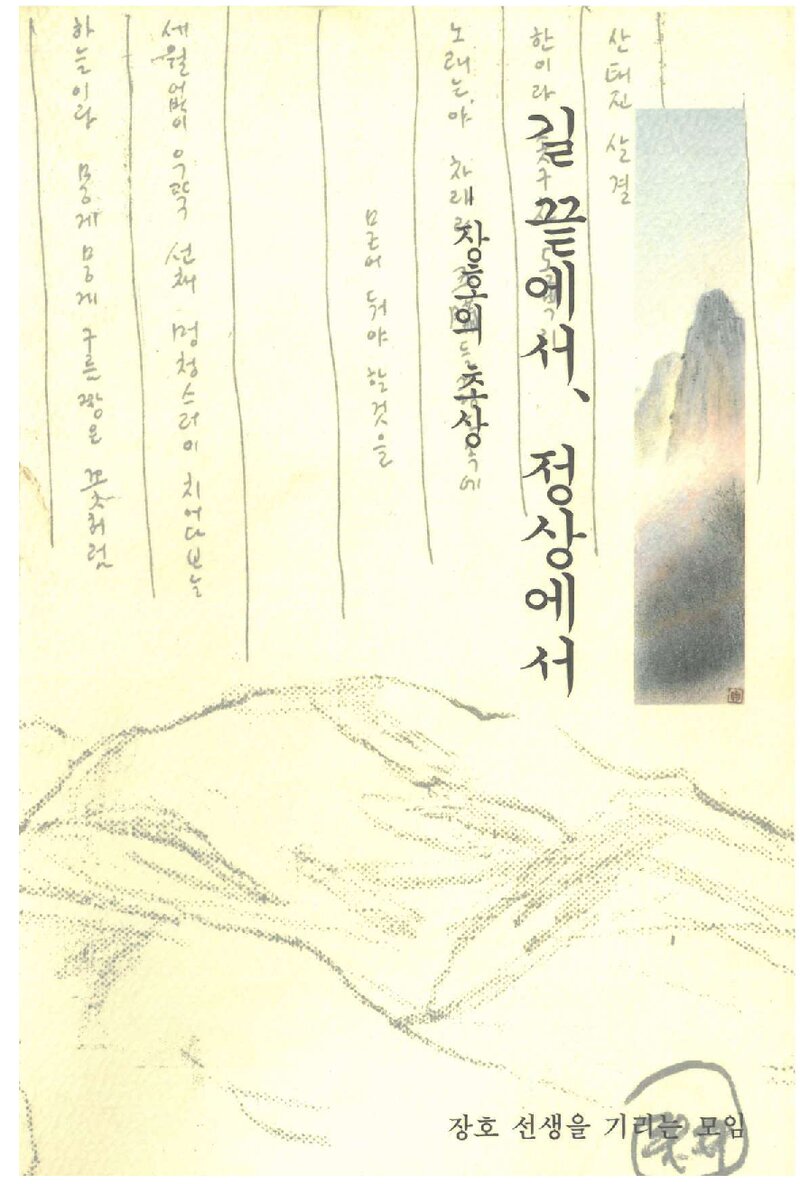 길 끝에서, 정상에서
장호의 초상
산태진 살결
한이라
노래는야 차래
묻어 둬야 할것을
세월없이 우뚝 선채 멍청스러이 치어다보늘
하늘이랑 뭉게뭉게 구른짱은 꽃처럼
장호 선생을 기리는 모임